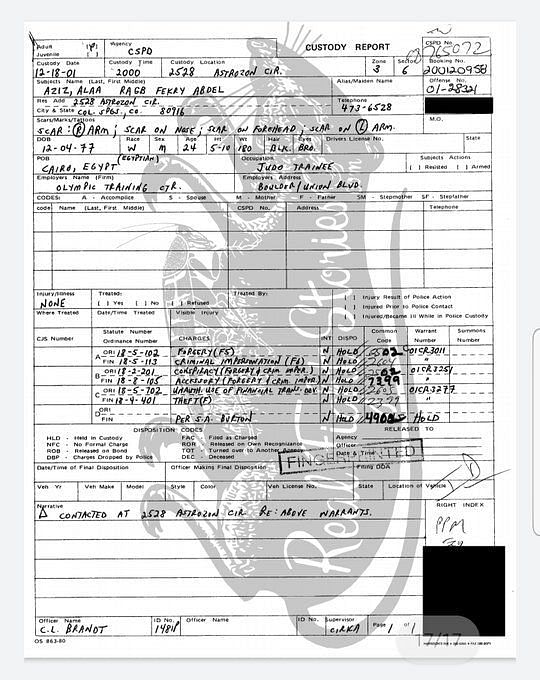 Adult [✓]
Juvenile [ ]
Agency
CSPD
CUSTODY REPORT
CSPD No.
Custody Date
12-18-01
Custody Time
2000
Custody Location
2528 ASTROZON CIR.
Zone
3
Sector
6
Booking No.
200120958
Subjects Name (Last, First Middle)
AZIZ, ALAA RAGB FEKRY ABDEL
Alias/Maiden Name
Offense No.
01-28321
Res Add 2528 ASTROZON CIR.
City & State COL. SPGS, CO. 80916
Telephone
473-6528
Scars/Marks/Tattoos
SCAR: (R) ARM; SCAR ON NOSE; SCAR ON FOREHEAD; SCAR ON (L) ARM.
M.O.
DOB
12-04-77
Race
W
Sex
M
Age
24
Ht
5-10
Wt
180
Hair
BLK.
Eyes
BRO.
Drivers License No.
State
POB (EGYPTIAN)
CAIRO, EGYPT
Occupation
JUDO TRAINEE
Subjects Actions
[ ] Resisted [ ] Armed
Employers Name (Firm)
OLYMPIC TRAINING CTR.
Employers Address
BOULDER/UNION BLVD.
CODES: A - Accomplice S - Spouse M - Mother F - Father SM - Stepmother SF - Stepfather
code Name (Last, First Middle) CSPD No. Address Telephone
Injury/Illness
NONE
Treated:
[ ] Yes [ ] No [ ] Refused
Treated By:
[ ] Injury Result of Police Action
[ ] Injured Prior to Police Contact
[ ] Injured/Became Ill While in Police Custody
Where Treated Date Treated Visible Injury
CJS Number
Statute Number
Ordinance Number
CHARGES
INT DISPO
Common
Code
Warrant
Number
Summons
Number
A ORI 18-5-102 FORGERY (F5) N HOLD 2502 01CR3011
FIN 18-5-113 CRIMINAL IMPERSONATION (F6) N HOLD "
B ORI 18-2-201 CONSPIRACY (FORGERY & CRIM. IMPER.) N HOLD 01CR3251
FIN 18-8-105 ACCESSORY (FORGERY & CRIM. IMPER.) N HOLD 7399 "
C ORI 18-5-702 UNAUTH. USE OF FINANCIAL TRANS. DEV. N HOLD 01CR3277
FIN 18-4-401 THEFT (F) N HOLD "
D ORI
FIN PER S.A. BURTON N HOLD 4901 HOLD
DISPOSITION CODES
HLD - Held in Custody
NFC - No Formal Charge
ROB - Released on Bond
DBP - Charges Dropped by Police
FAC - Filed as Charged
ROR - Released on Own Recognizance
TOT - Turned over to Another Agency
DEC - Deceased
RELEASED TO
Agency
Officer
Date & Time
FINGERPRINTED
Date/Time of Final Disposition Officer Making Final Disposition Filing DDA
Veh Yr Veh Make Model Style Color Veh License No. State Location of Vehicle
Narrative
Δ CONTACTED AT 2528 ASTROZON CIR RE: ABOVE WARRANTS.
RIGHT INDEX
PPM
Real World Police Stories
Officer Name
C.L. BRANDT
ID No.
1481P
Officer Name
ID No.
Supervisor
CIRKA
Page 1 of 1
OS 863-80
7/17